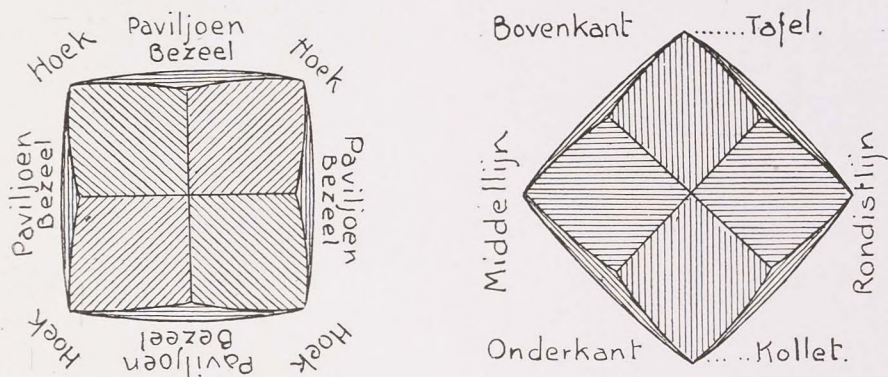 Paviljoen
Bezeel
Hoek
Hoek
Paviljoen
Bezeel
Paviljoen
Bezeel
Hoek
Paviljoen
Bezeel
Hoek
Bovenkant ....... Tafel.
Middellijn
Rondistlijn
Onderkant ..... Kollet.